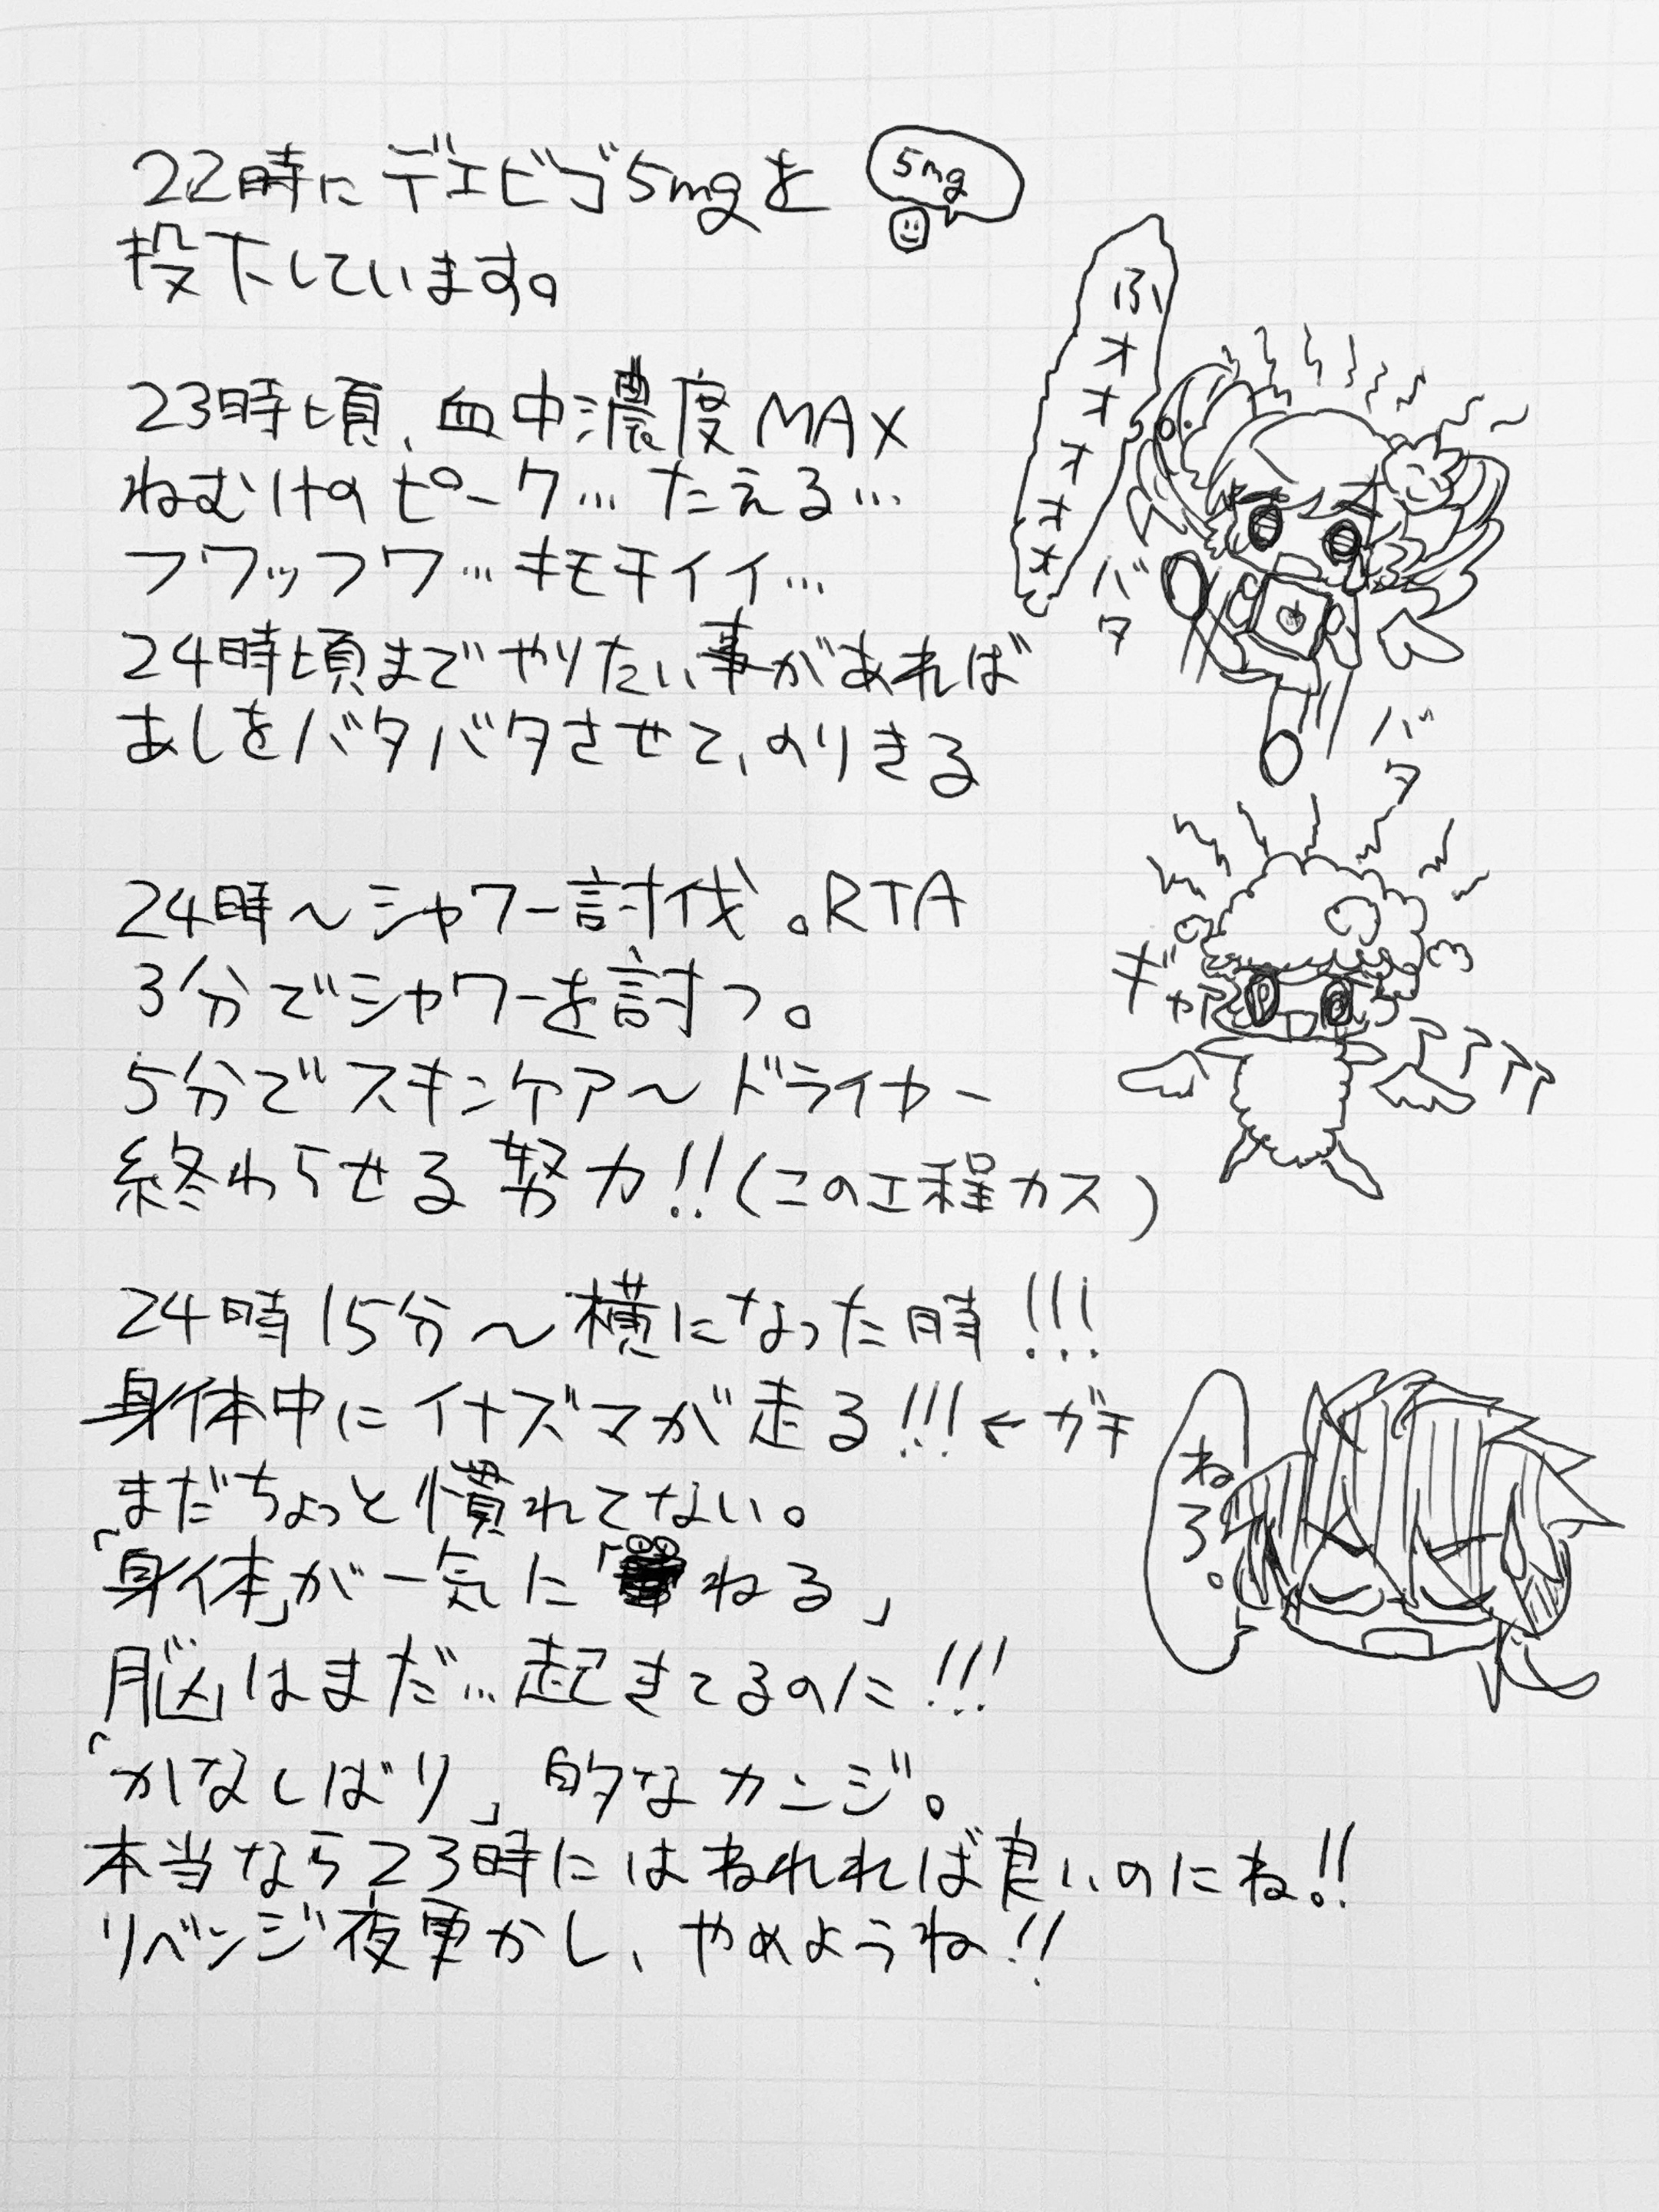 22時にデエビゴ5mgを
投下しています。
5mg
23時頃、血中濃度MAX
ねむけのピーク…たえる…
フワッフワ…キモチイイ…
24時頃までやりたい事があれば
あしをバタバタさせて、のりきる
ふオオオオオ
バタ
バタ
24時〜シャワー討伐。RTA
3分でシャワーを討つ。
5分でスキンケア〜ドライヤー
終わらせる努力!!(この工程カス)
ギャアアアアア
24時15分〜横になった時!!!
身体中にイナズマが走る!!!←ガチ
まだちょっと慣れてない。
「身体」が一気に「ねる」
脳はまだ…起きてるのに!!!
「かなしばり」的なカンジ。
本当なら23時にはねれれば良いのにね!!
リベンジ夜更かし、やめようね!!
ねろ。